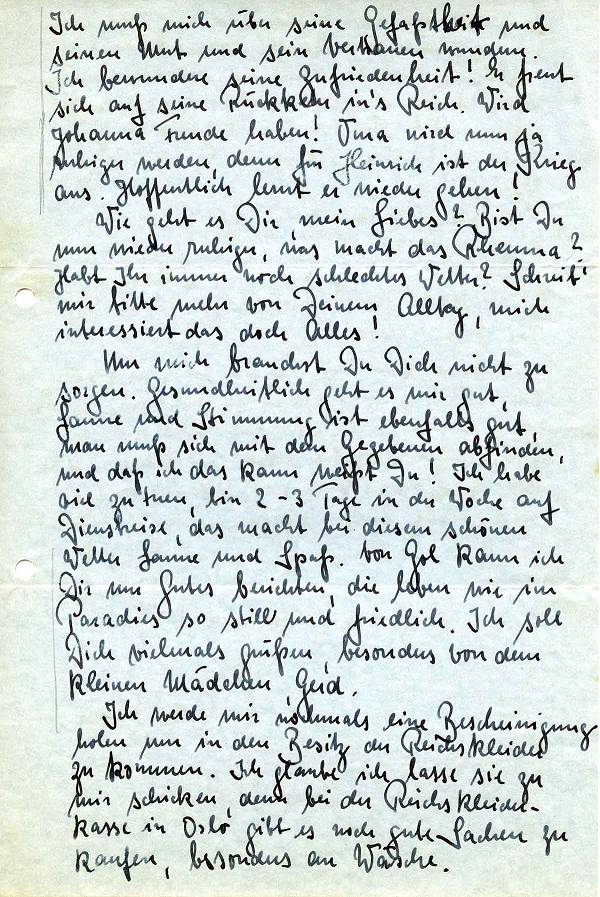 Ich muß mich über seine Gefaßtheit und
seinen Mut und sein Vertrauen wundern.
Ich bewundere seine Zufriedenheit! Er freut
sich auf seine Rückkehr in's Reich. Wird
Johanna Freude haben! Oma wird nun ja
ruhiger werden, denn für Heinrich ist der Krieg
aus. Hoffentlich lernt er wieder gehen!
Wie geht es Dir, mein Liebes? Bist Du
nun wieder ruhiger, was macht das Rheuma?
Habt Ihr immer noch schlechtes Wetter? Schreib'
mir bitte mehr von Deinem Alltag, mich
interessiert das doch Alles!
Um mich brauchst Du Dich nicht zu
sorgen. Gesundheitlich geht es mir gut,
Laune und Stimmung ist ebenfalls gut,
man muß sich mit dem Gegebenen abfinden,
und daß ich das kann weißt Du! Ich habe
viel zu tuen, bin 2-3 Tage in der Woche auf
Dienstreise, das macht bei diesem schönen
Wetter Laune und Spaß. Von Gol kann ich
Dir nur Gutes berichten, die leben wie im
Paradies so still und friedlich. Ich soll
Dich vielmals grüßen, besonders von dem
kleinen Mädchen Gerd.
Ich werde mir nochmals eine Bescheinigung
holen um in den Besitz der Reichskleider
zu kommen. Ich glaube ich lasse sie zu
mir schicken, denn bei der Reichskleider-
kasse in Oslo gibt es noch gute Sachen zu
kaufen, besonders an Wäsche.